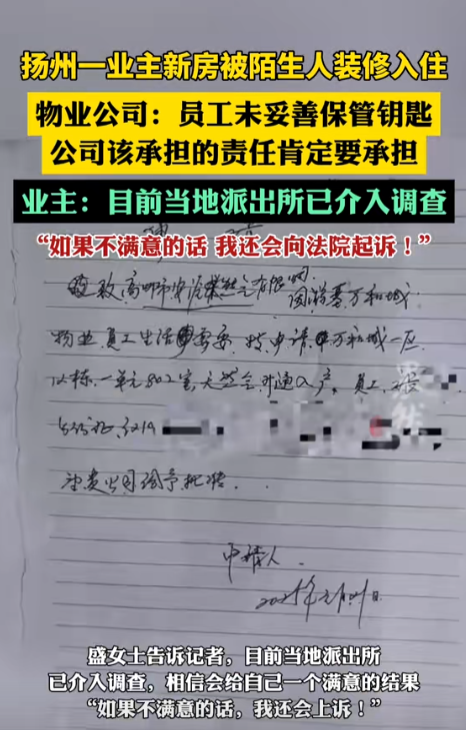 扬州一业主新房被陌生人装修入住
物业公司：员工未妥善保管钥匙
公司该承担的责任肯定要承担
业主：目前当地派出所已介入调查
“如果不满意的话 我还会向法院起诉！”
致高邮市
万和城
物业员工生活需要 特申请 万和城一区
栋一单元802室 天然气开通入户，员工
贵公司给予批准.
申请人
2025年
盛女士告诉记者，目前当地派出所
已介入调查，相信会给自己一个满意的结果
“如果不满意的话，我还会上诉！”